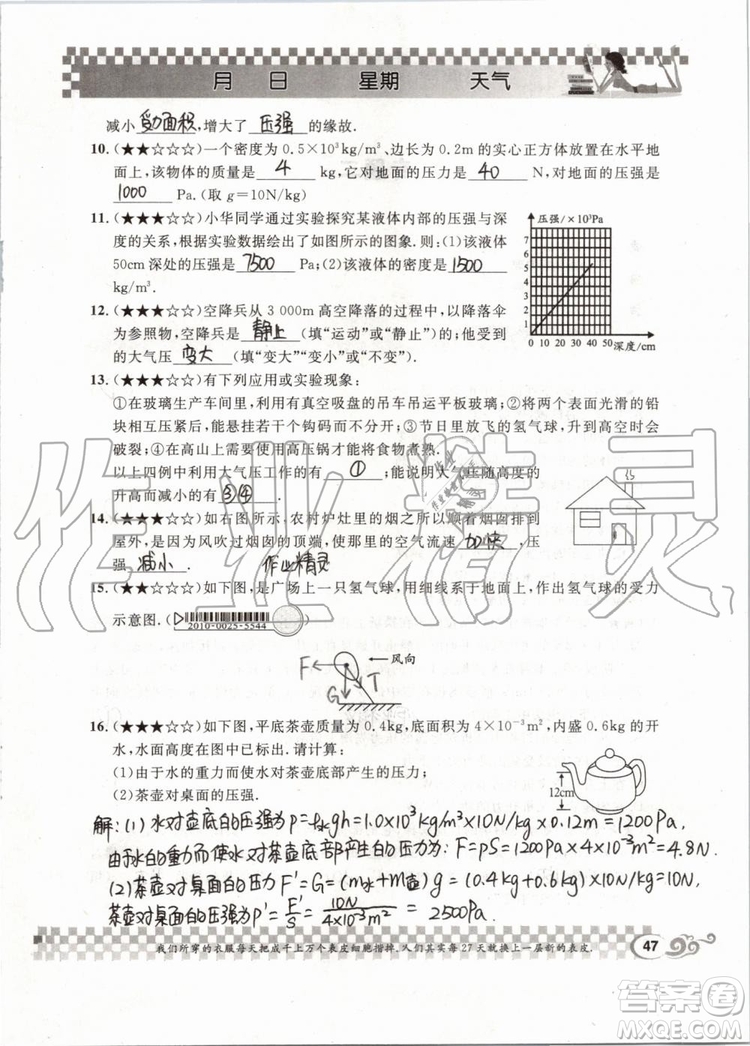 月 日 星期 天气
减小 受力面积 ,增大了 压强 的缘故.
10.(★★☆☆☆)一个密度为0.5×10³kg/m³、边长为0.2m的实心正方体放置在水平地
面上,该物体的物体的质量是 4 kg,它对地面的压力是 40 N,对地面的压强是
1000 Pa.(取g=10N/kg)
11.(★★★☆☆)小华同学通过实验探究某液体内部的压强与
深度的关系,根据实验数据绘出了如图所示的图象.则:(1)该液体
50cm深处的压强是 7500 Pa;(2)该液体的密度是 1500
kg/m³.
压强/×10³Pa
7
6
5
4
3
2
1
0 10 20 30 40 50
深度/cm
12.(★★★☆☆)空降兵从3 000m高空降落的过程中,以降落伞
为参照物,空降兵是 静止 (填“运动”或“静止”)的;他受到
的大气压 变大 (填“变大”“变小”或“不变”).
13.(★★★☆☆)有下列应用或实验现象:
①在玻璃生产车间里,经常用装有真空吸盘的吊车吊运平板玻璃;②两个表面光滑的铅
块相互挤压后,能悬挂若干个钩码而不分开;③节日里放飞的氢气球,升到高空时会
破裂;④在高山上需要使用高压锅才能将食物煮熟.
以上四例中利用大气压工作的有 ① ;能说明大气压随高度的
升高而减小的有 ③④ .
14.(★★★☆☆)如右图所示,农村炉灶里的烟之所以顺着烟囱排到
屋外,是因为风吹过烟囱的顶端,使那里的空气流速 加快 ,压
强 减小 .
作业精灵
15.(★★★☆☆)如下图,是广场上一只氢气球,用细线系于地面上,作出氢气球的受力
示意图.
2010-0025-5544
F 风向
G T
16.(★★★☆☆)如下图,平底茶壶质量为0.4kg,底面积为4×10⁻³m²,内盛0.6kg的开
水,水面高度在图中已标出.请计算:
(1)由于水的重力而使水对茶壶底部产生的压力;
(2)茶壶对桌面的压强.
12cm
解:(1)水对壶底的压强为p=ρ水gh=1.0×10³kg/m³×10N/kg×0.12m=1200Pa,
由于水的重力而使水对茶壶底部产生的压力为:F=pS=1200Pa×4×10⁻³m²=4.8N
(2)茶壶对桌面的压力F'=G=(m水+m壶)g=(0.4kg+0.6kg)×10N/kg=10N.
茶壶对桌面的压强为p'=F'/S=10N/4×10⁻³m²=2500Pa
我们所穿的衣服每天把成千上万个表皮细胞揩掉.人们其实每27天就换上一层新的表皮.
47
作业精灵
答案圈
MXQE.COM